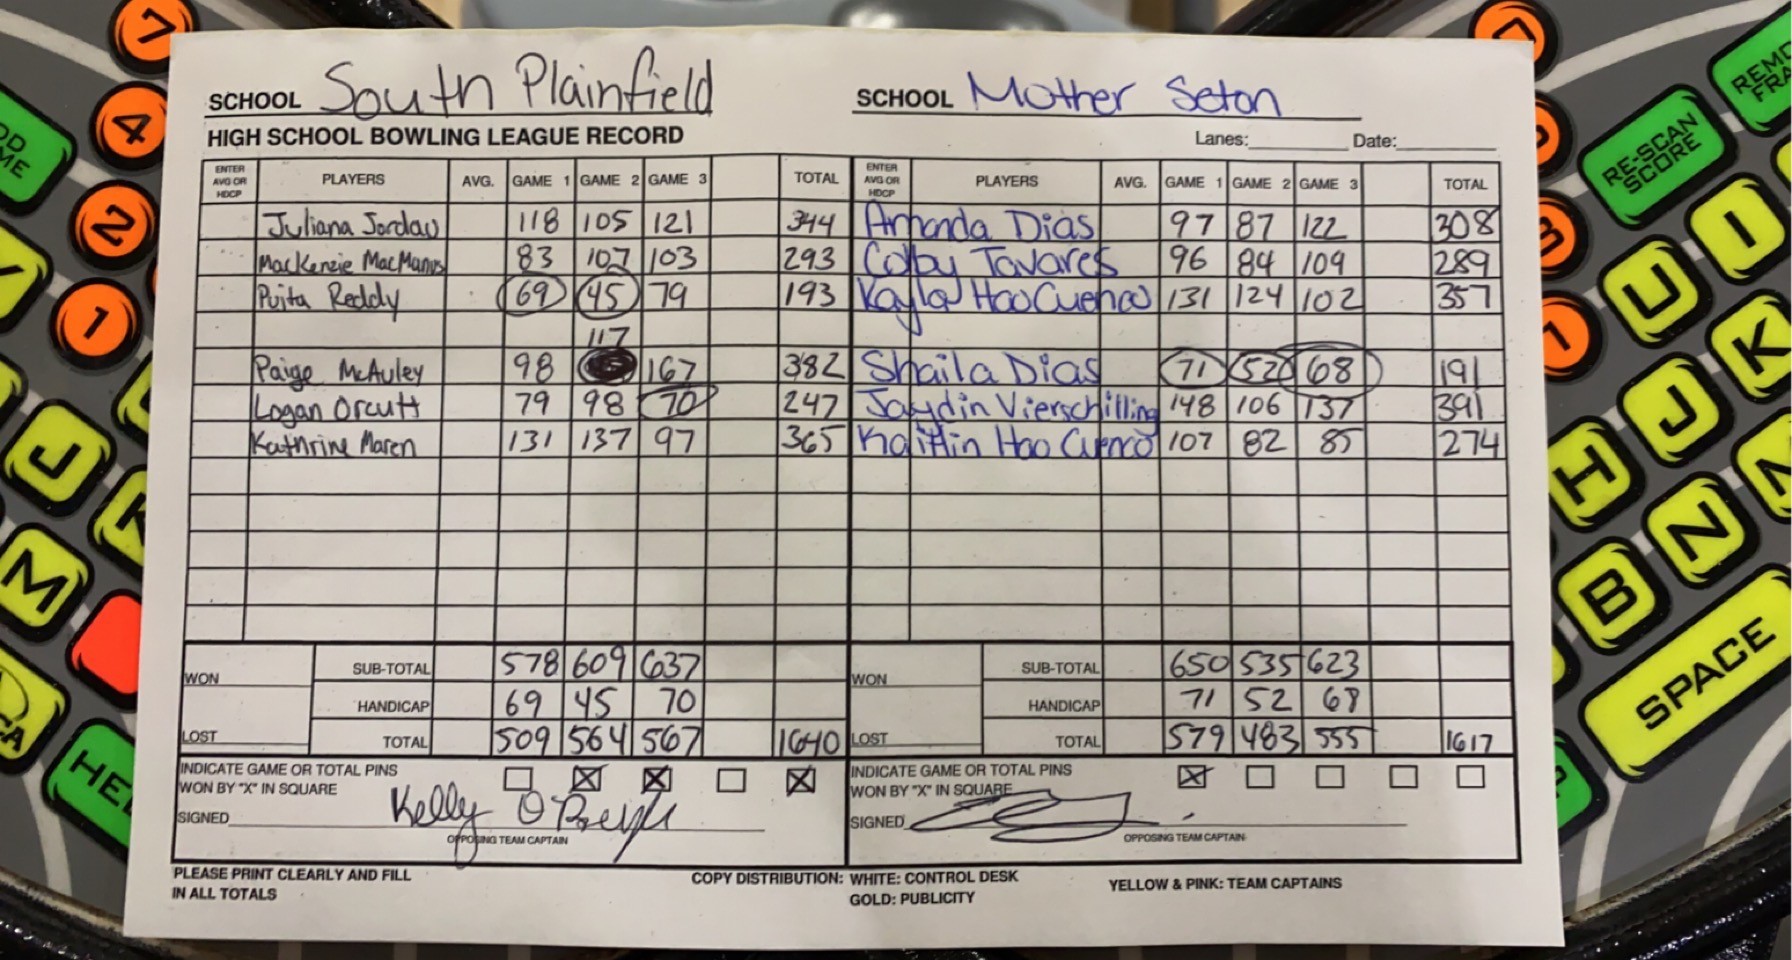 SCHOOL South Plainfield
SCHOOL Mother Seton
HIGH SCHOOL BOWLING LEAGUE RECORD
Lanes: Date:
ENTER AVG OR HDCP PLAYERS AVG. GAME 1 GAME 2 GAME 3 TOTAL ENTER AVG OR HDCP PLAYERS AVG. GAME 1 GAME 2 GAME 3 TOTAL
Juliana Jordan 118 105 121 344 Amanda Dias 97 87 122 308
Mackenzie MacManus 83 107 103 293 Colby Tavares 96 84 109 289
Puita Reddy 69 45 79 193 Kayla Hao Cuenca 131 124 102 357
117
Paige McAuley 98 167 382 Shaila Dias 71 52 68 191
Logan Orcutt 79 98 70 247 Jaydin Vierschilling 148 106 137 391
Kathrine Maren 131 137 97 365 Kaitlin Hao Cuenca 107 82 85 274
WON SUB-TOTAL 578 609 637 WON SUB-TOTAL 650 535 623
HANDICAP 69 45 70 HANDICAP 71 52 68
LOST TOTAL 509 564 567 1640 LOST TOTAL 579 483 555 1617
INDICATE GAME OR TOTAL PINS
WON BY "X" IN SQUARE
SIGNED Kelly
OPPOSING TEAM CAPTAIN
INDICATE GAME OR TOTAL PINS
WON BY "X" IN SQUARE
SIGNED
OPPOSING TEAM CAPTAIN
PLEASE PRINT CLEARLY AND FILL
IN ALL TOTALS
COPY DISTRIBUTION: WHITE: CONTROL DESK
GOLD: PUBLICITY
YELLOW & PINK: TEAM CAPTAINS
7
4
2
1
J
M
RE-SCAN
SCORE
I
U
K
J
H
N
B
SPACE